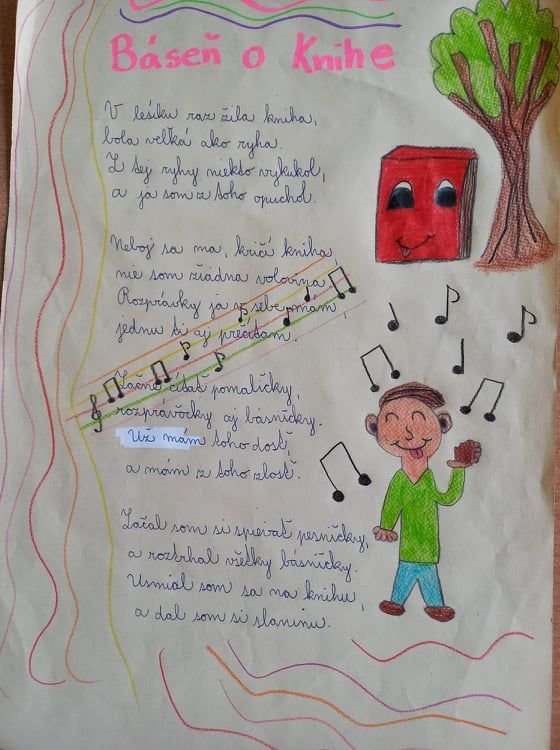 Báseň o Knihe
V lesíku raz žila kniha,
bola veľká ako ryha.
Z tej ryhy niekto vykukol,
a ja som z toho opuchol.
Neboj sa ma, kričí kniha
nie som žiadna volovina.
Rozprávky ja v sebe mám,
jednu si aj prečítam.
Začne čítať pomaličky,
rozprávočky aj básničky.
Už mám toho dosť,
a mám z toho zlosť.
Začal som si spievať pesničky,
a roztrhal všetky básničky.
Usmial som sa na knihu,
a dal som si slaninu.